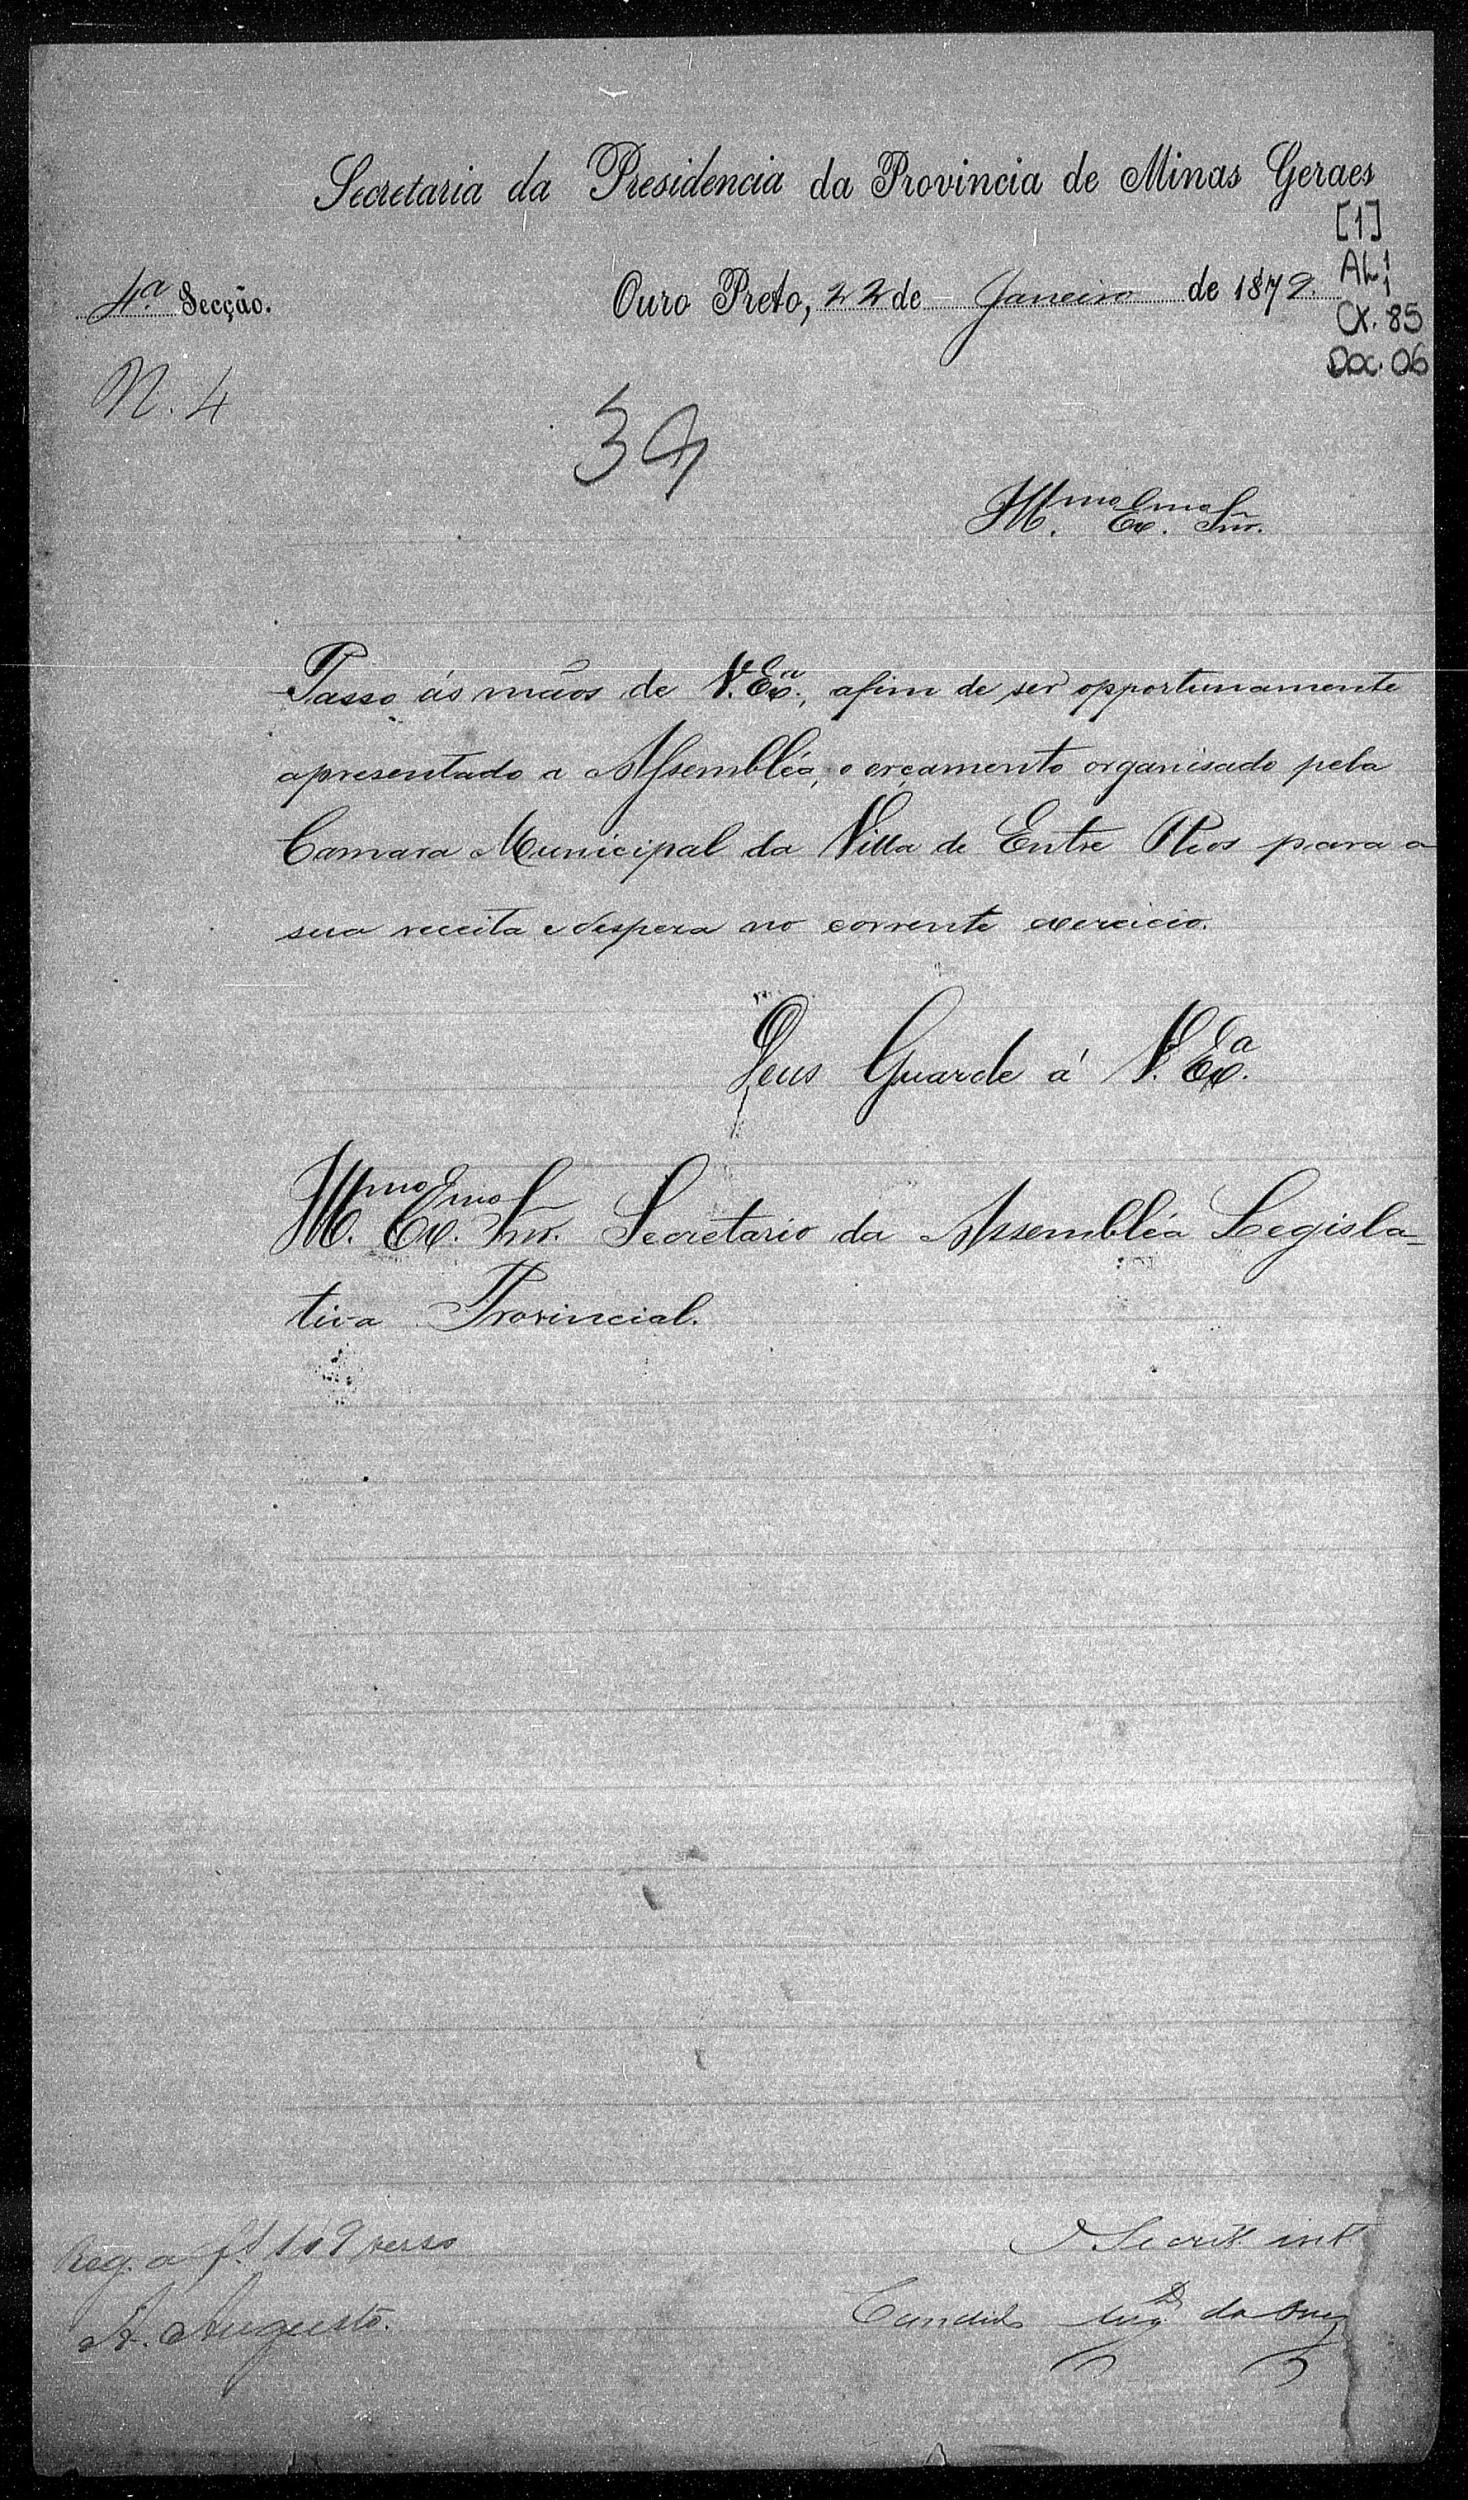 Secretaria da Presidencia da Provincia de Minas Geraes
[1]
AL 1
1
CX. 85
Doc. 06
4.ª Secção.
Ouro Preto, 22 de Janeiro de 1879.
N. 4
34
Ill.mo Ex.mo Snr.
Passo ás mãos de V. Ex.ª, afim de ser opportunamente
apresentado a Assembléa, o orçamento organisado pela
Camara Municipal da Villa de Entre Rios para a
sua receita e despeza no corrente exercicio.
Deus Guarde á V. Ex.ª
Ill.mo Ex.mo Snr. Secretario da Assembléa Legisla-
tiva Provincial.
Reg. a fl 109 verso
A. Augusto.
O Secret. int.
Candido Aug.